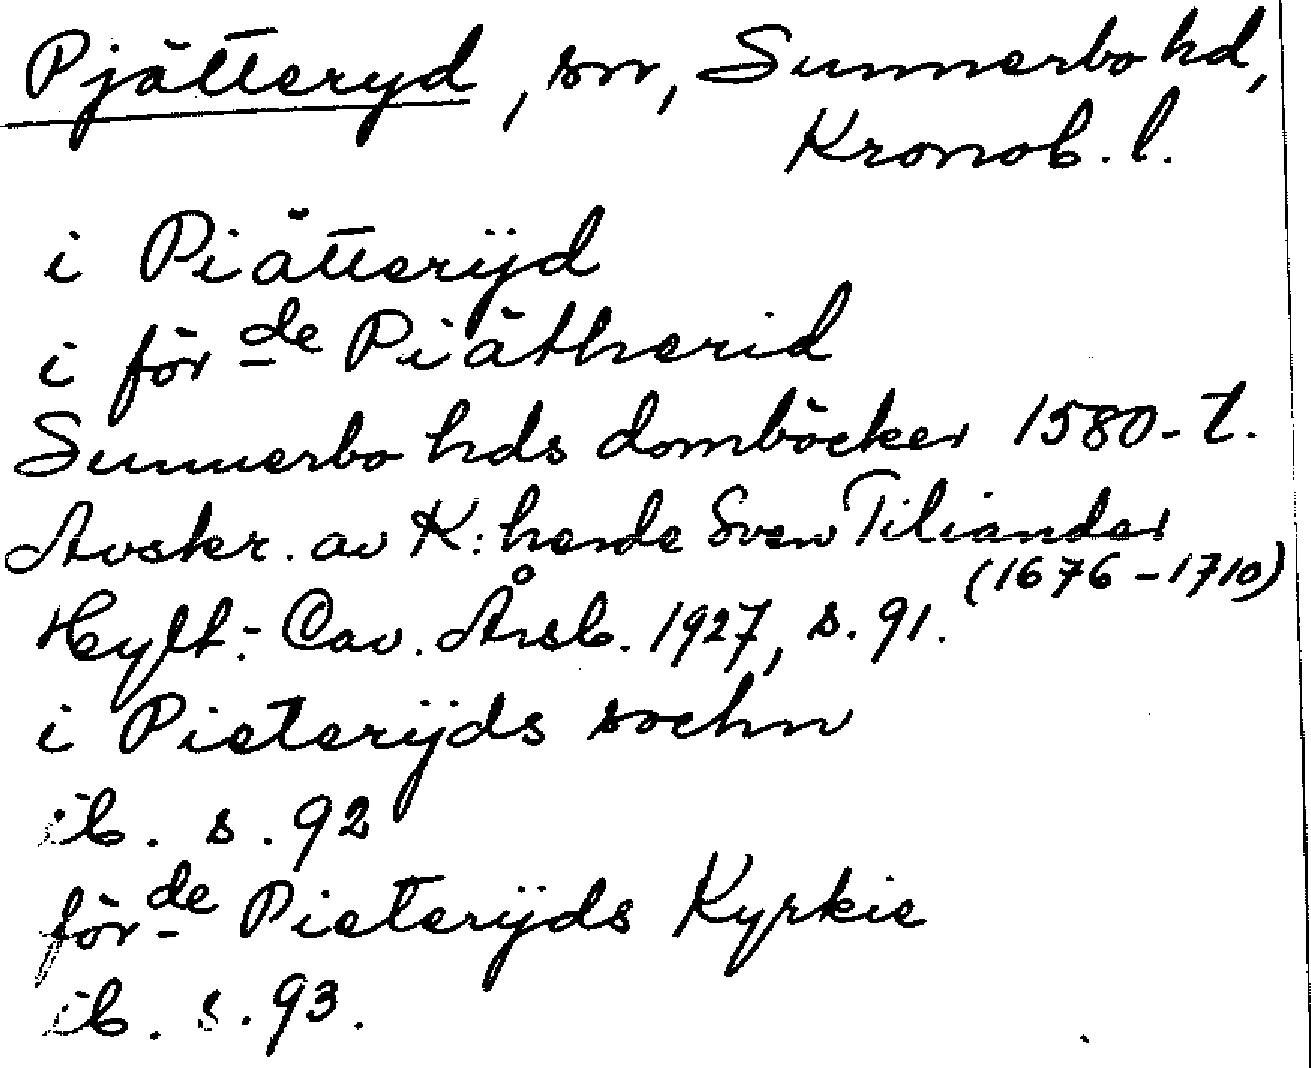 Pjätteryd, sn, Sunnerbo hd,
Kronob. l.
i Piätterÿd
i för de Piätherid
Sunnerbo hds domböcker 1580-t.
Avskr. av K:herde Sven Tiliander
(1676-1710)
Hylt:- Cav. Årsb. 1927, s. 91.
i Pieterÿds sochn
ib. s. 92
för de Pieterÿds Kyrkie
ib. s. 93.